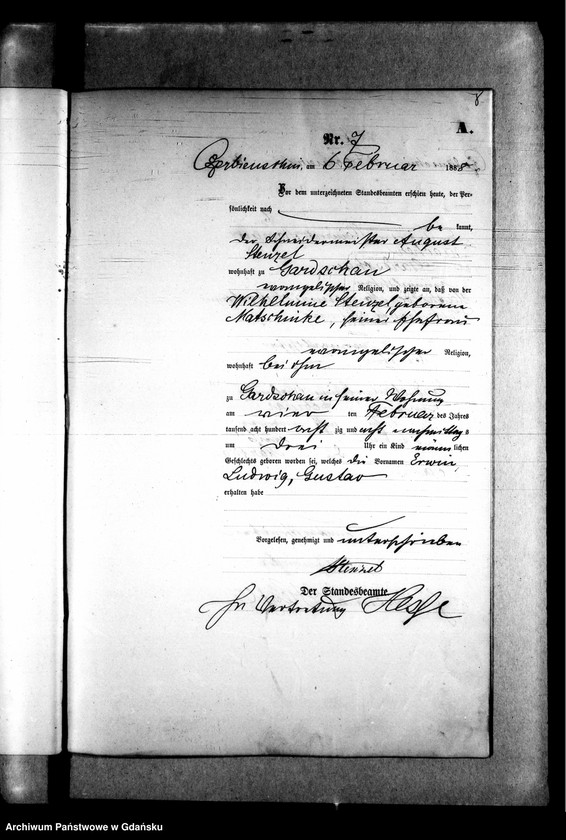 8
A.
Nr. 7
Czerbienschin, am 6 Februar 1888
Vor dem unterzeichneten Standesbeamten erschien heute, der Per-
sönlichkeit nach
be kannt,
der Schneidermeister August
Stenzel
wohnhaft zu Gardschau
evangelischer Religion, und zeigte an, daß von der
Wilhelmine Stenzel geborene
Matschinke, seiner Ehefrau
evangelischer Religion,
wohnhaft bei ihm
zu Gardschau in seiner Wohnung
am vier ten Februar des Jahres
tausend acht hundert acht zig und acht nachmittags
um drei Uhr ein Kind männ lichen
Geschlechts geboren worden sei, welches die Vornamen Erwin,
Ludwig, Gustav
erhalten habe
Vorgelesen, genehmigt und unterschrieben
Stenzel
Der Standesbeamte
In Vertretung Hesse
Archiwum Państwowe w Gdańsku